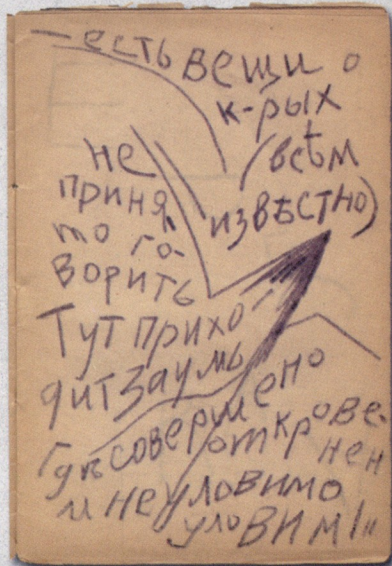 — есть вещи о
к-рых
(всѣм
извѣстно)
не
приня
то го-
ворить
Тут прихо-
дит заумь
Гдѣ совершено
откровенен
и неуловимо
уловим!"